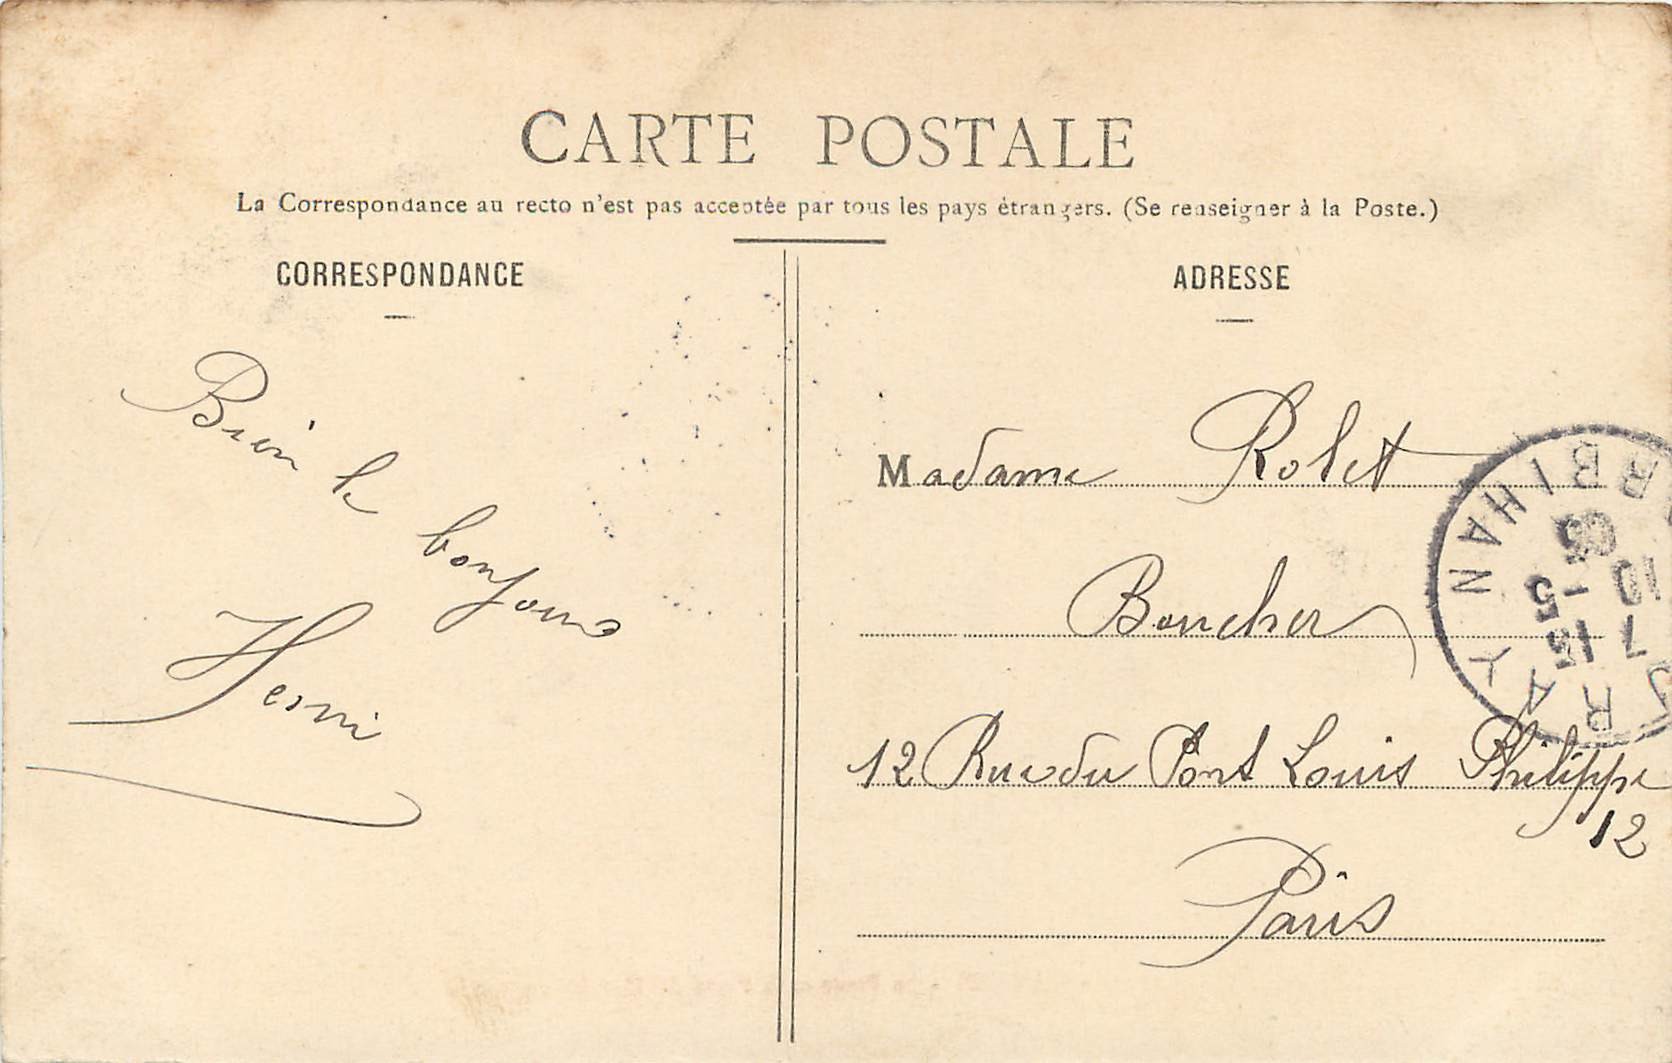 CARTE POSTALE
La Correspondance au recto n'est pas acceptée par tous les pays étrangers. (Se renseigner à la Poste.)
CORRESPONDANCE
Bien le
bonjour
Henri
ADRESSE
Madame Rolet
Boucher
12 Rue du Pont Louis Philippe
12
Paris
RAY
RBIHAN
7 10
13 -5